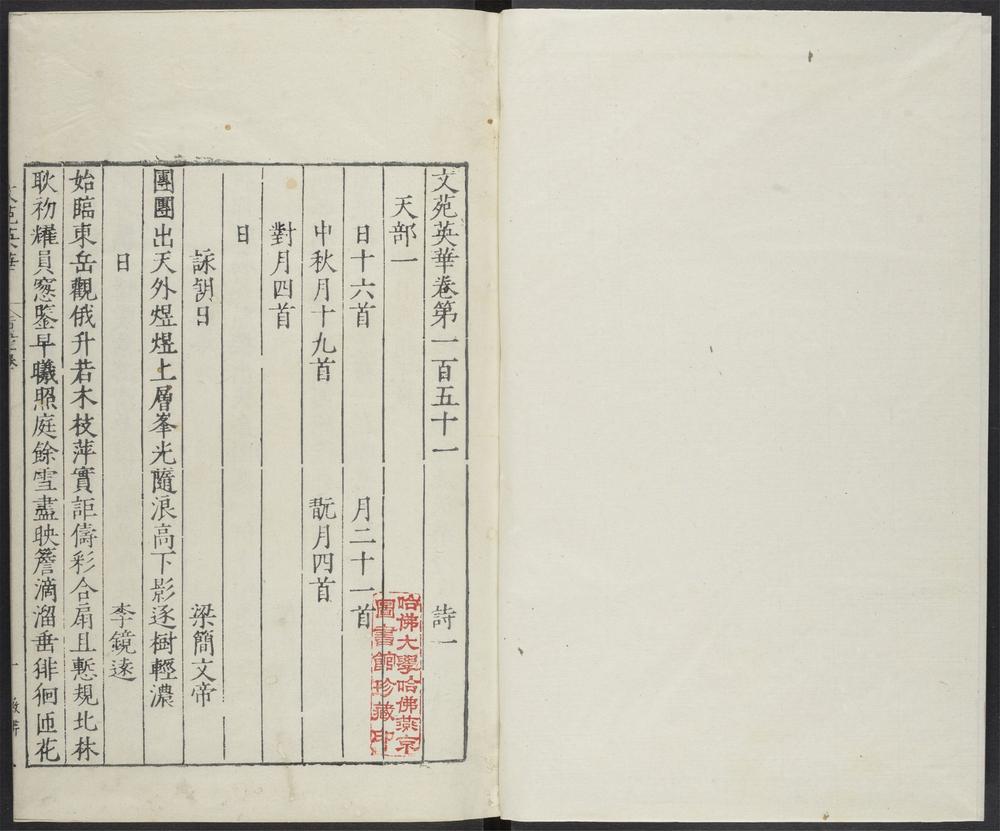 文苑英華卷第一百五十一　詩一
天部一
日十六首　月二十一首
中秋月十九首　翫月四首
對月四首
日
詠朝日　梁簡文帝
團團出天外煜煜上層峯光隨浪高下影逐樹輕濃
日　李鏡遠
始臨東岳觀俄升若木枝萍實詎儔彩合扇且慙規北林
耿初耀員窓鑒早曦照庭餘雪盡映簷滴溜垂徘徊匝花
哈佛大學哈佛燕京
圖書館珍藏印
文苑英華